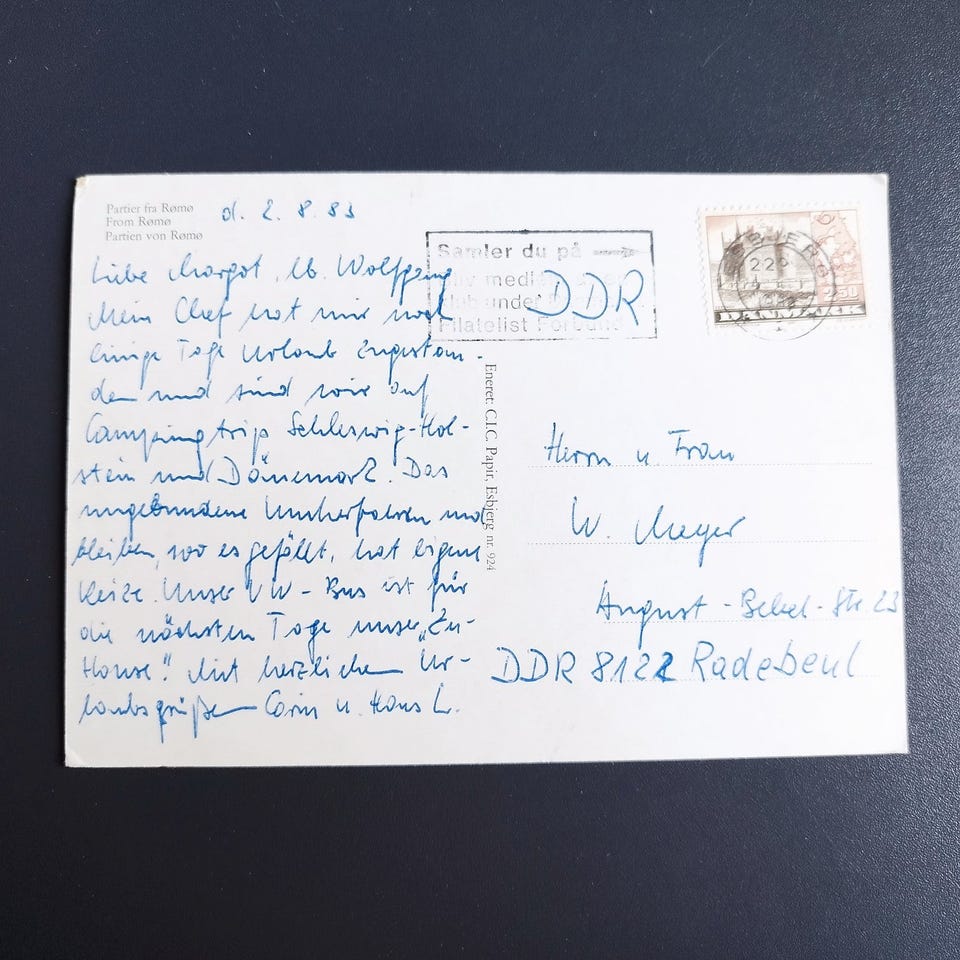 Partier fra Rømø
From Rømø
Partien von Rømø
d. 2. 8. 83
Liebe Margot, lb. Wolfgang
Mein Chef hat mir noch
einige Tage Urlaub zugestan-
den und sind wir auf
Campingtrip Schleswig-Hol-
stein und Dänemark. Das
ungebundene Umherfahren und
bleiben, wo es gefällt, hat eigene
Reize. Unser VW-Bus ist für
die nächsten Tage unser „Zu-
Hause“. Mit herzlichen Ur-
laubsgrüßen Corin u. Hans L.
Samler du på
medl
klub under
Filatelist Forbund
DDR
ESBJERG
DANMARK
Eneret: C.I.C. Papir, Esbjerg nr. 924
Herrn u. Frau
W. Meyer
August-Bebel-Str. 23
DDR 8122 Radebeul